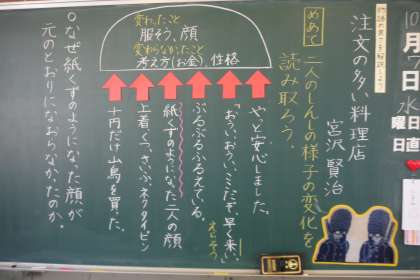 注文の多い料理店
宮沢賢治
めあて 二人のしんしの様子の変化を
読み取ろう。
変わったこと
服そう、顔
変わらなかったこと
考え方(お金)、性格
やっと安心しました。
「おうい、おうい、ここだぞ、早く来い。」
ぶるぶるふるえている。
紙くずのようになった二人の顔
上着、くつ、さいふ、ネクタイピン
十円だけ山鳥を買った。
○なぜ紙くずのようになった顔が
元のとおりになおらなかったのか。
月
7
日
水
曜日
日直